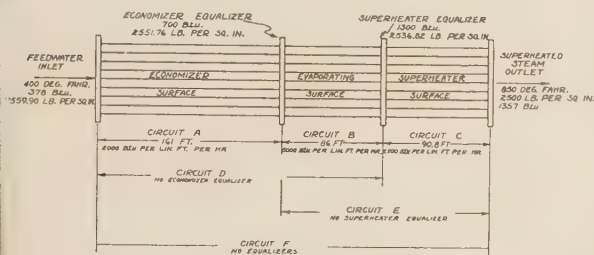 ECONOMIZER EQUALIZER
700 B.t.u.
2551.76 LB. PER SQ. IN.
SUPERHEATER EQUALIZER
1300 B.t.u.
2536.82 LB. PER SQ. IN.
FEEDWATER
INLET
400 DEG. FAHR.
378 B.t.u.
2559.90 LB. PER SQ. IN.
ECONOMIZER
SURFACE
EVAPORATING
SURFACE
SUPERHEATER
SURFACE
SUPERHEATED
STEAM
OUTLET
850 DEG. FAHR.
2500 LB. PER SQ. IN.
1357 B.t.u.
CIRCUIT A
161 FT.
2000 B.t.u. PER LIN. FT. PER HR.
CIRCUIT B
86 FT.
PER LIN. FT. PER HR.
CIRCUIT C
90.8 FT.
PER LIN. FT. PER HR.
CIRCUIT D
NO ECONOMIZER EQUALIZER
CIRCUIT E
NO SUPERHEATER EQUALIZER
CIRCUIT F
NO EQUALIZERS